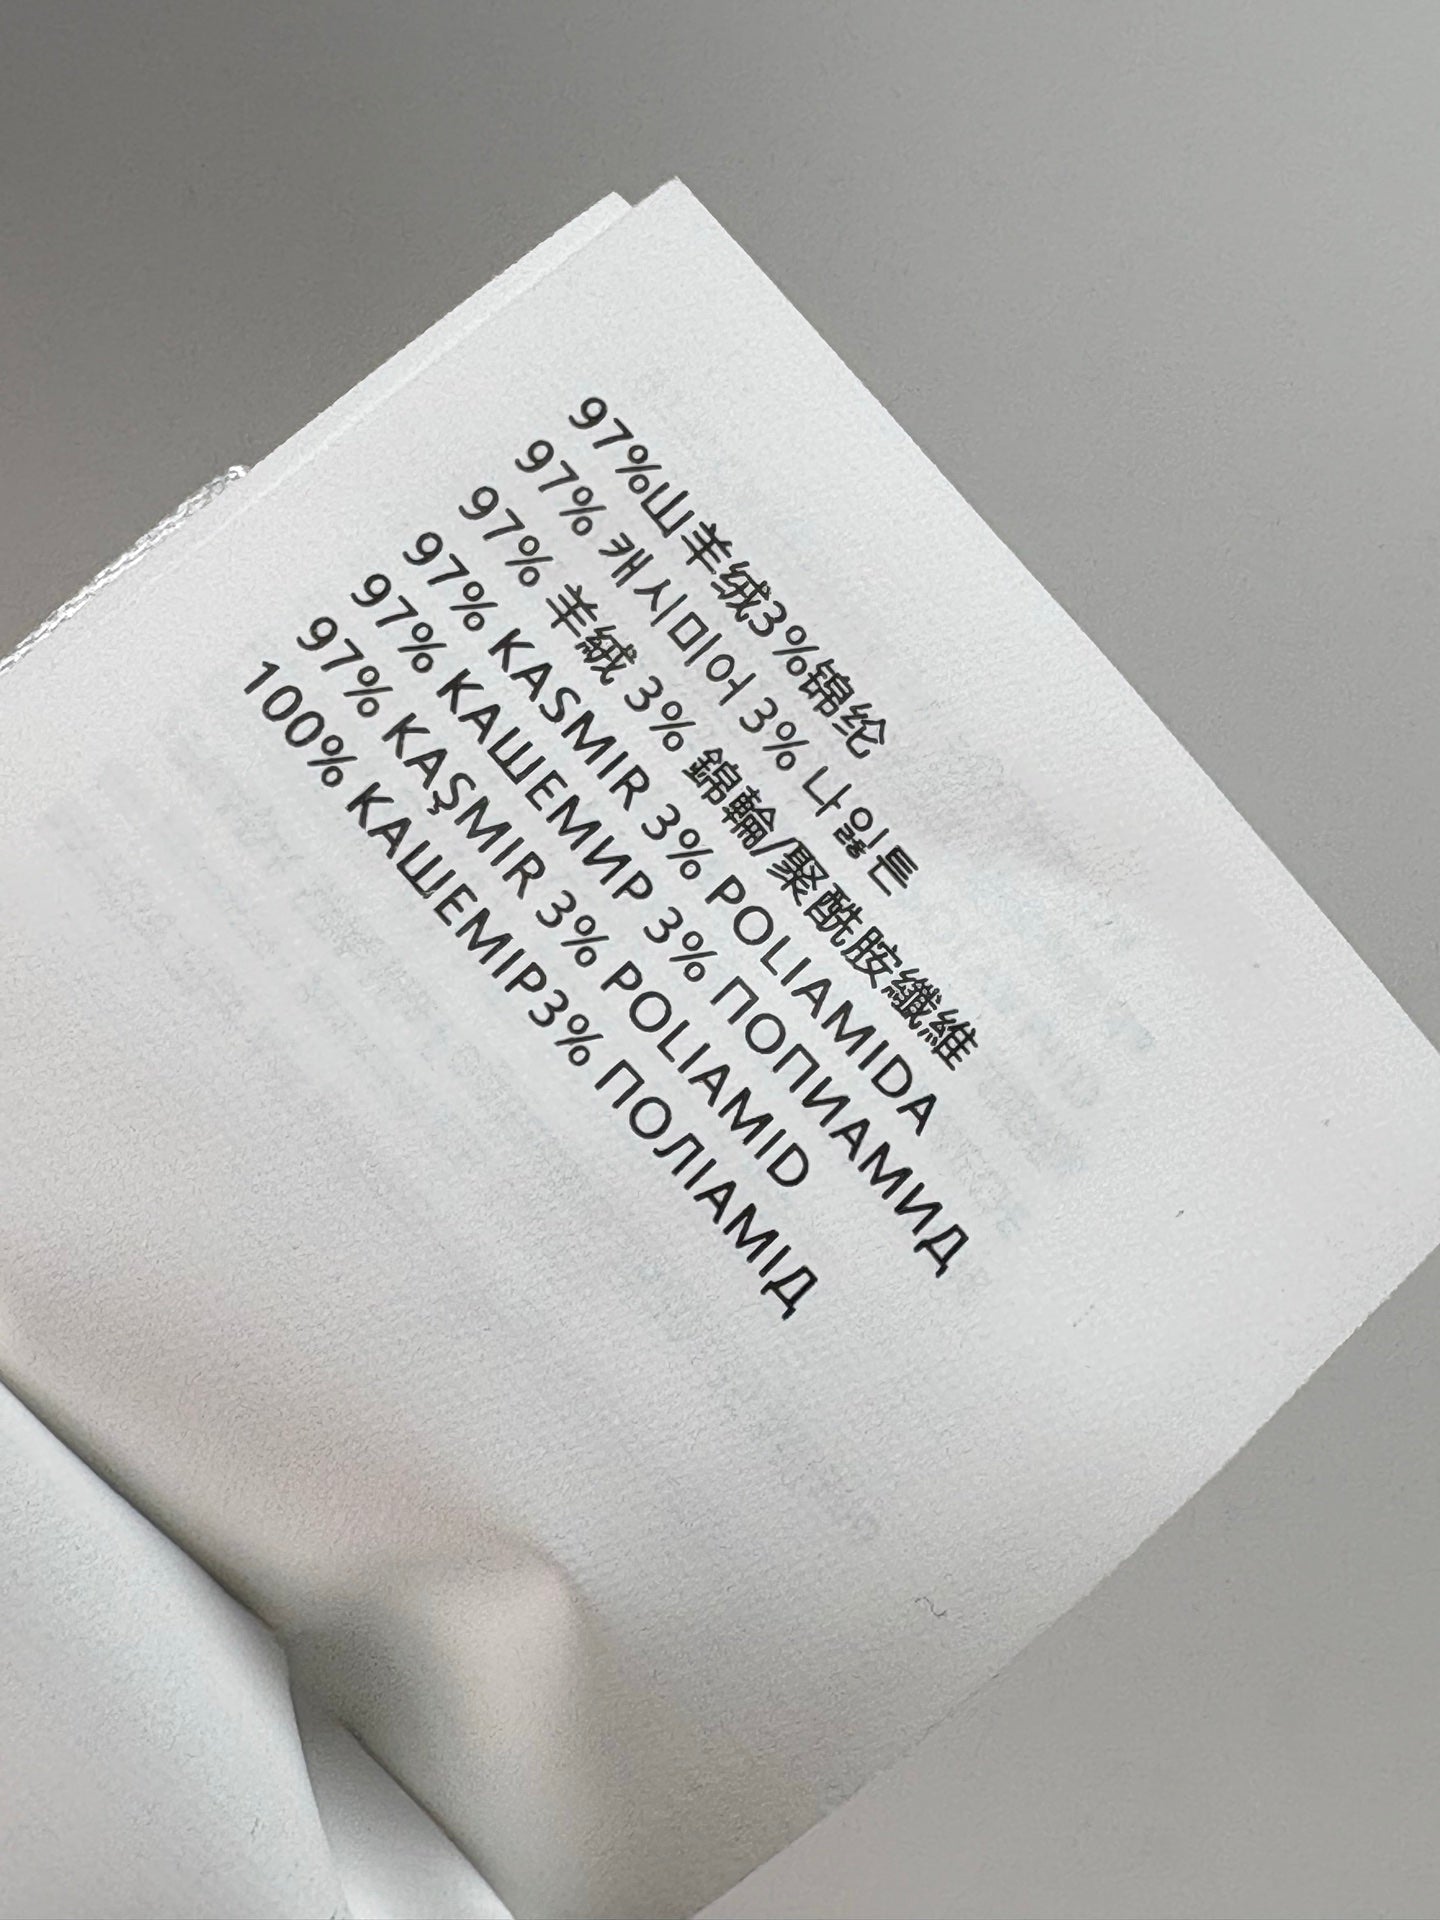 97%山羊绒3%锦纶
97% 캐시미어 3% 나잃튼
97% 羊絨 3% 錦輪/聚酰胺纖維
97% KASMIR 3% POLIAMIDA
97% КАШЕМИР 3% ПОПИАМИД
97% KAŞMIR 3% POLIAMID
100% КАШЕМІР3% ПОЛІАМІД